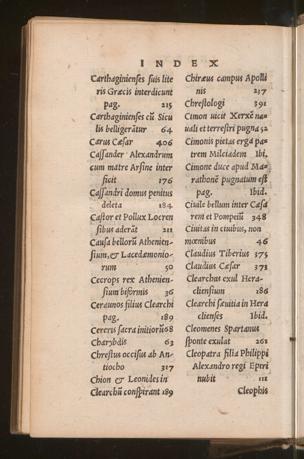 INDEX
Carthaginienses suis lite
ris Græcis interdicunt
pag. 215
Carthaginienses cū Sicu
lis belligerātur 64
Carus Cæsar 406
Cassander Alexandrum
cum matre Arsine inter
ficit 176
Cassandri domus penitus
deleta 184
Castor et Pollux Locren
sibus aderāt 211
Causa bellorū Athenien-
sium, & Lacedæmonio-
rum 50
Cecrops rex Athenien-
sium biformis 36
Ceraunos filius Clearchi
pag. 189
Cereris sacra initiorū 68
Charybdis 63
Chrestus occisus ab An-
tiocho 317
Chion & Leonides in
Clearchū conspirant 189
Chiræus campus Apolli
nis 217
Chrestologi 391
Cimon uicit Xerxē na-
uali et terrestri pugna 52
Cimonis pietas erga pa-
trem Milciadem Ibi.
Cimone duce apud Ma-
rathonē pugnatum est
pag. Ibid.
Ciuile bellum inter Cæsa
rem et Pompeiū 348
Ciuitas in ciuibus, non
mœnibus 46
Claudius Tiberius 375
Claudius Cæsar 371
Clearchus exul Hera-
cliensium 186
Clearchi sæuitia in Hera
clienses Ibid.
Cleomenes Spartanus
sponte exulat 261
Cleopatra filia Philippi
Alexandro regi Epiri
nubit 111
Cleophis